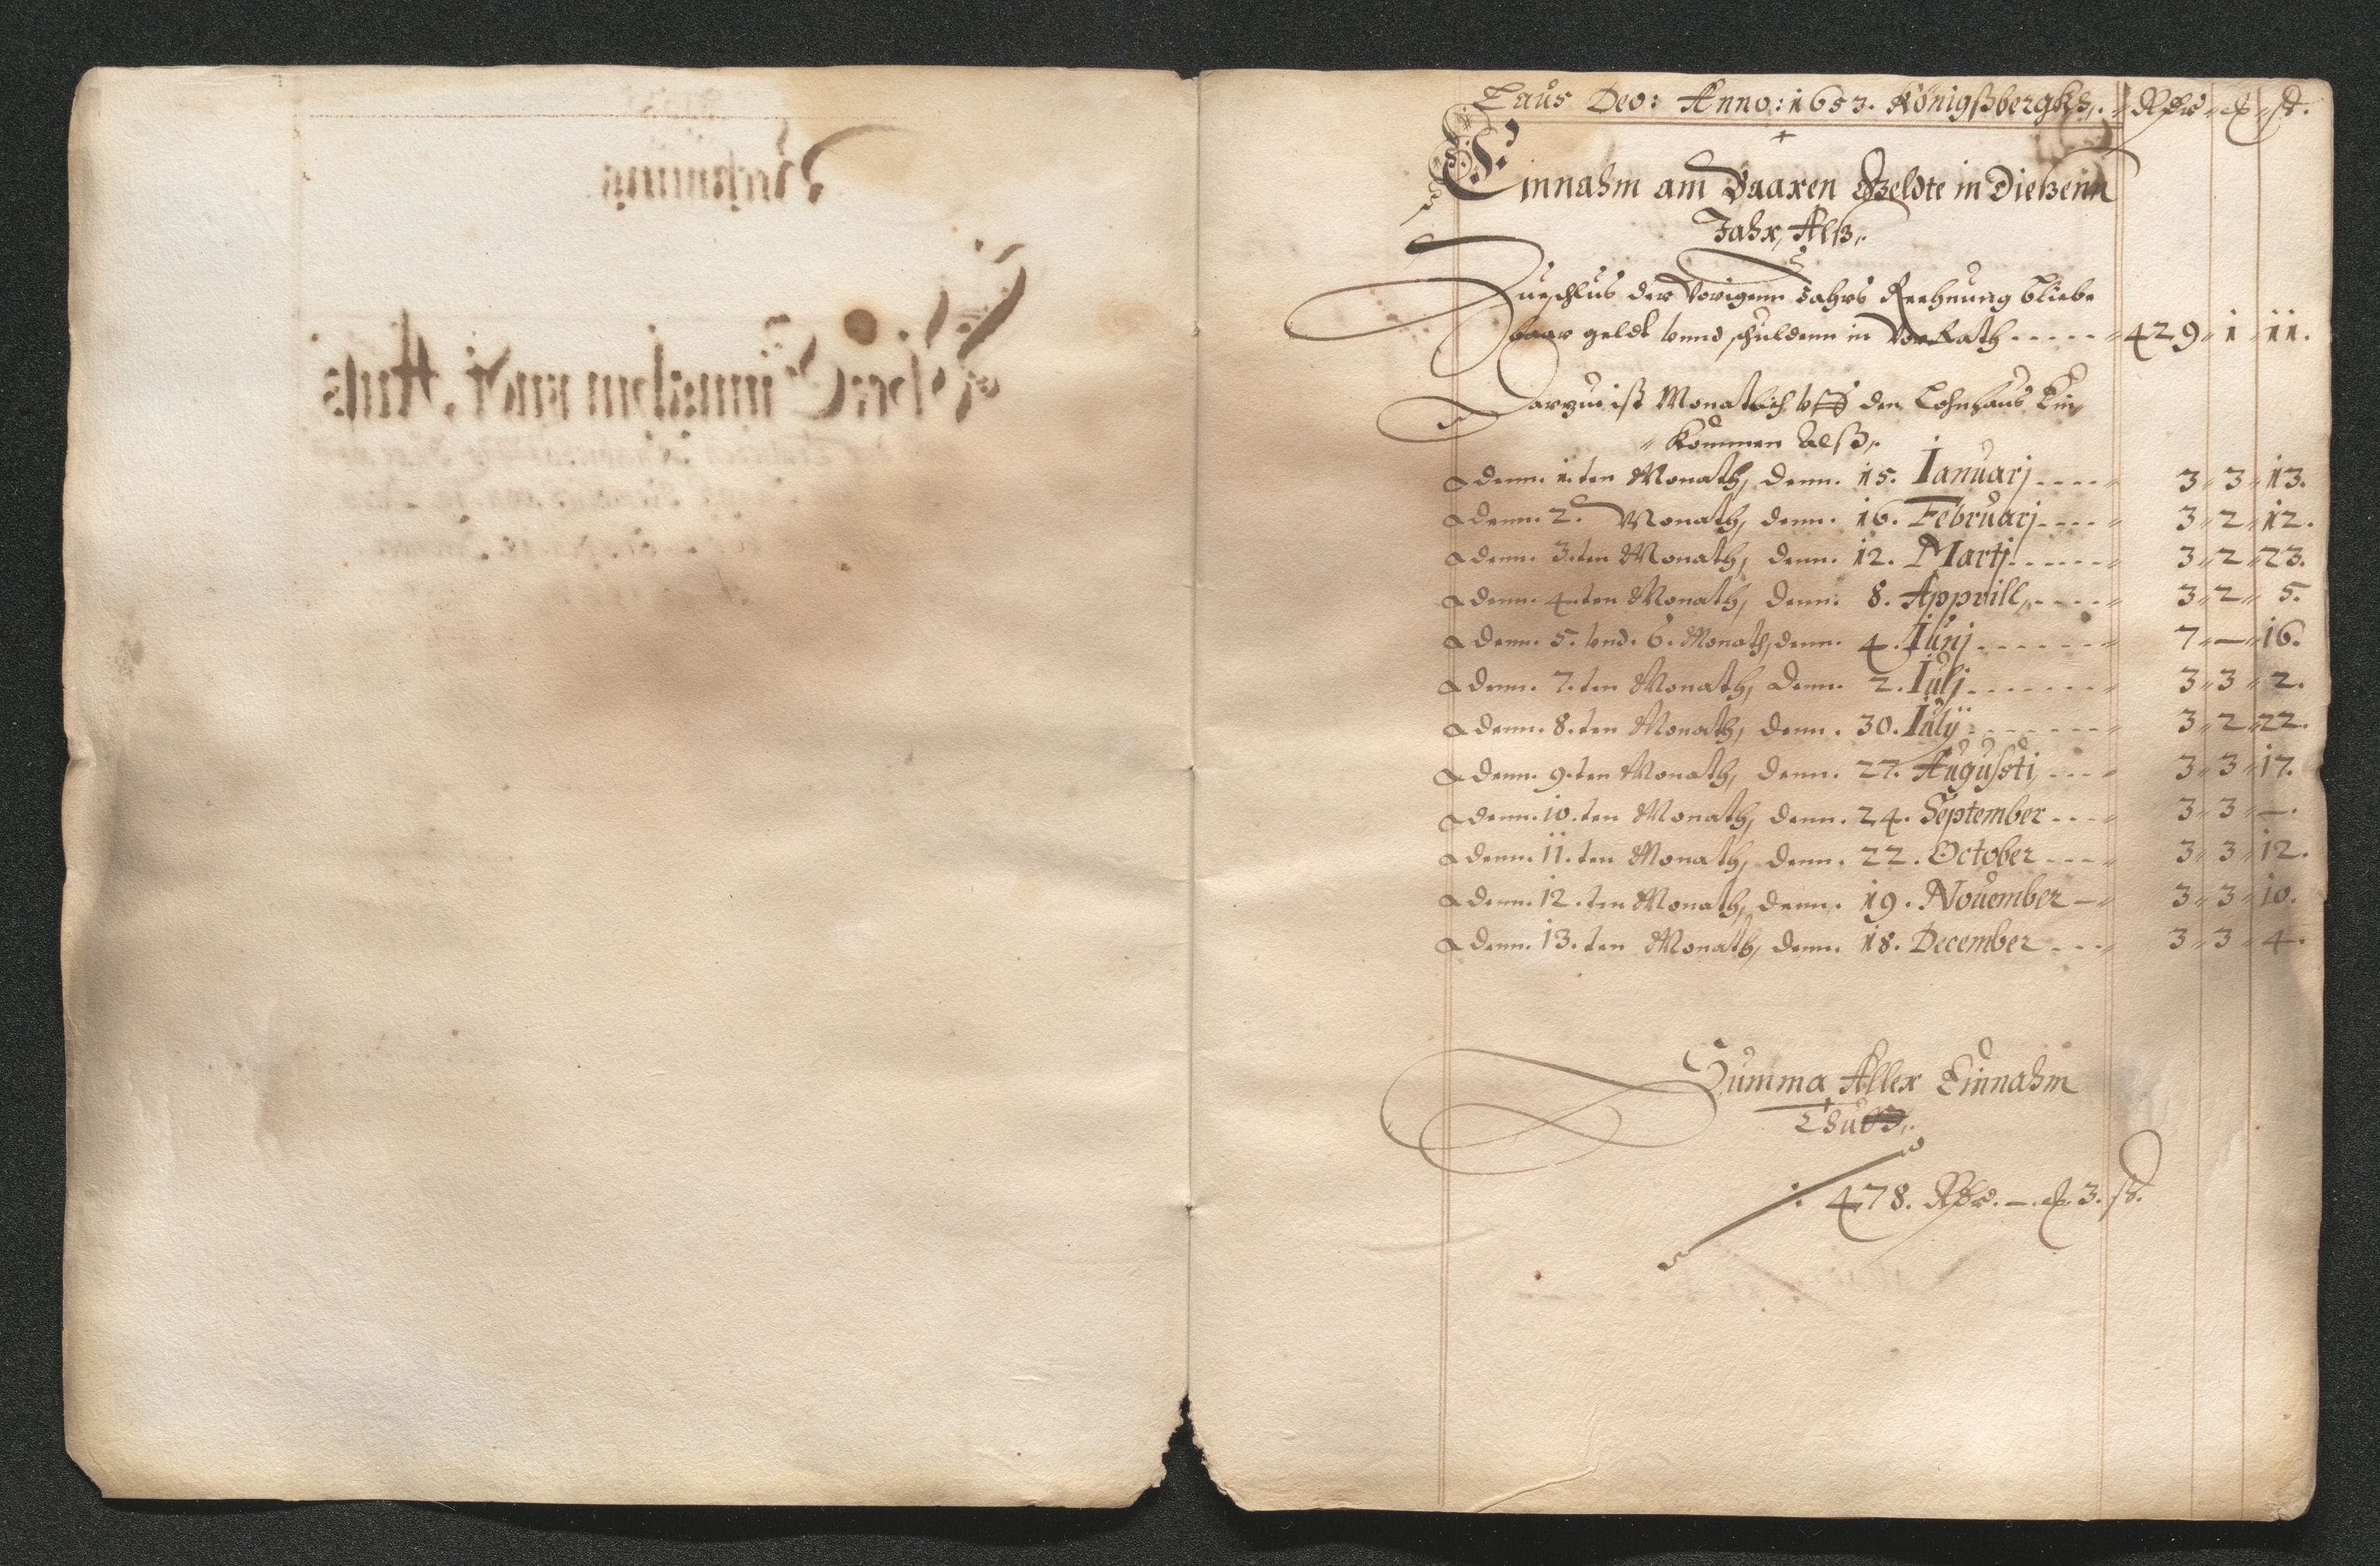 Laus Deo: Anno: 1653. Königßbergks,. Rdr ₰ ß.
Einnahm am Baaren Geldte in Dießenn
Jahr, Alß,.
Zueschlus der Vorigenn Jahrs Rechnung bliebe
baar geldt vnnd schuldenn in VorRath ----- 429 " 1 " 11.
Darzu ist Monatlich vff den Lohnhaus Ein
" kommen Alß,.
Adenn. 1.ten Monath, denn. 15. Januarj ---- 3 " 3 " 13.
Adenn. 2. Monath, denn. 16. Februarj ---- 3 " 2 " 12.
Adenn. 3.ten Monath, denn. 12. Martj ------ 3 " 2 " 23.
Adenn. 4.ten Monath, denn. 8. Apprill, ---- 3 " 2 " 5.
Adenn. 5. vnd. 6. Monath, denn. 4. Junj ------- 7 " — " 16.
Adenn. 7.ten Monath, denn. 2. Julj ------- 3 " 3 " 2.
Adenn. 8.ten Monath, denn. 30. Julÿ ------- 3 " 2 " 22.
Adenn. 9.ten Monath, denn. 27. Augusti ---- 3 " 3 " 17.
Adenn. 10.ten Monath, denn. 24. September --- 3 " 3 " —.
Adenn. 11.ten Monath, denn. 22. October ---- 3 " 3 " 12.
Adenn. 12.ten Monath, denn. 19. November — 3 " 3 " 10.
Adenn. 13.ten Monath, denn. 18. December --- 3 " 3 " 4.
Summa Aller Einnahm
Thutt
: 478. Rdr. —. ₰. 3. ß.